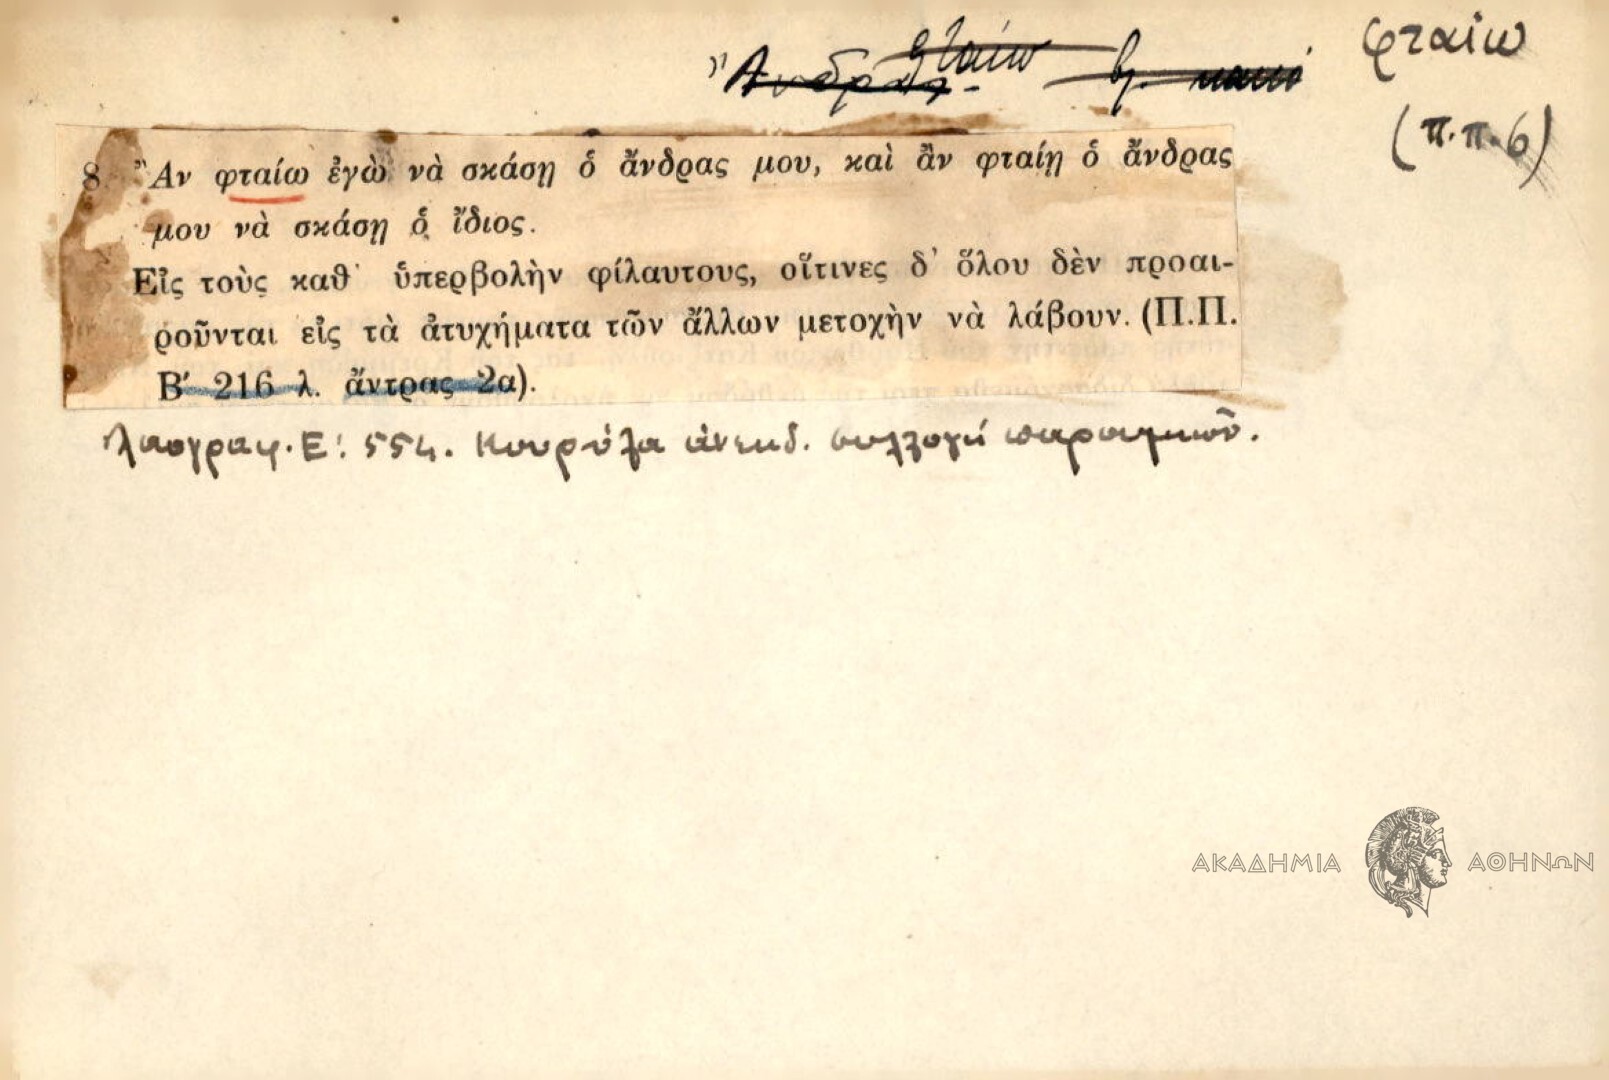 φταίω
Ἄνδρας - φταίω βλ. κακό
(π.π. 6)
8. Ἂν φταίω ἐγὼ νὰ σκάσῃ ὁ ἄνδρας μου, καὶ ἂν φταίῃ ὁ ἄνδρας
μου νὰ σκάσῃ ὁ ἴδιος.
Εἰς τοὺς καθ' ὑπερβολὴν φίλαυτους, οἵτινες δ' ὅλου δὲν προαι-
ροῦνται εἰς τὰ ἀτυχήματα τῶν ἄλλων μετοχὴν νὰ λάβουν. (Π.Π.
Β′ 216 λ. ἄντρας 2α).
Λαογραφ. Ε′. 554. Κουρίλα ἀνεκδ. συλλογή παροιμιῶν.
ΑΚΑΔΗΜΙΑ ΑΘΗΝΩΝ